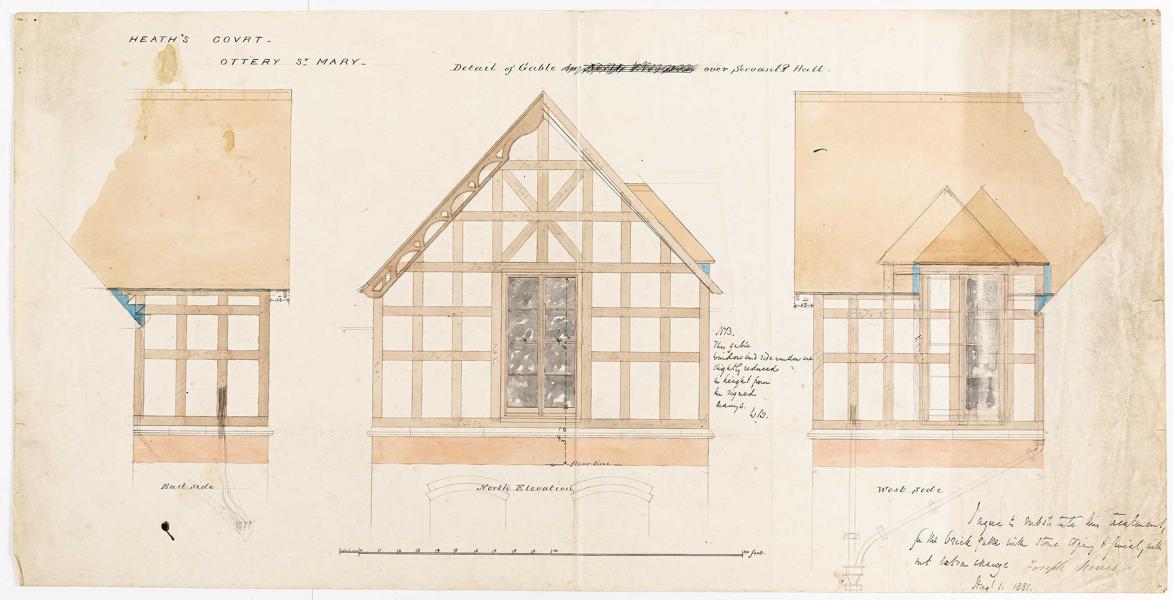 HEATH'S COVRT.
OTTERY Sᵗ MARY.
Detail of Gable over Servants Hall.
NB.
This gable
windows and side window are
slightly reduced
in height from
the signed
drawings.
floor line
East side
North Elevation
West side
10
20 feet.
I agree to substitute this treatment
for the brick gable with stone coping & finial, with
out extra change
Augᵗ 1. 1881.